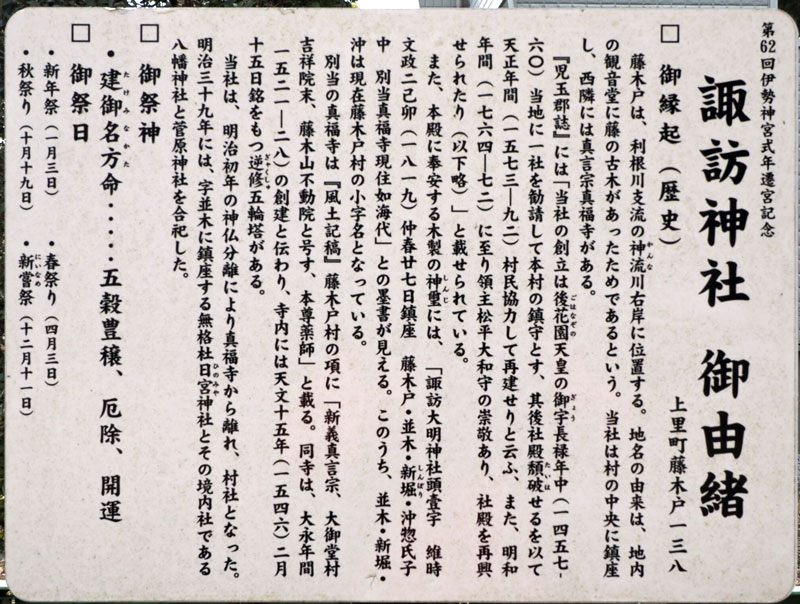 第62回伊勢神宮式年遷宮記念
諏訪神社 御由緒
上里町藤木戸一三八
□御縁起(歴史)
藤木戸は、利根川支流の神流川右岸に位置する。地名の由来は、地内
の観音堂に藤の古木があったためであるという。当社は村の中央に鎮座
し、西隣には真言宗真福寺がある。
『児玉郡誌』には「当社の創立は後花園天皇の御宇長禄年中(一四五七-
六〇)当地に一社を勧請して本村の鎮守とす、其後社殿頽破せるを以て
天正年間(一五七三―九二)村民協力して再建せりと云ふ、また、明和
年間(一七六四―七二)に至り領主松平大和守の崇敬あり、社殿を再興
せられたり(以下略)」と載せられている。
また、本殿に奉安する木製の神璽には、「諏訪大明神社頭壹宇 維時
文政二己卯(一八一九)仲春廿七日鎮座 藤木戸・並木・新堀・沖惣氏子
中 別当真福寺現住如海代」との墨書が見える。このうち、並木・新堀・
沖は現在藤木戸村の小字名となっている。
別当の真福寺は『風土記稿』藤木戸村の項に「新義真言宗、大御堂村
吉祥院末、藤木山不動院と号す、本尊薬師」と載る。同寺は、大永年間
(一五二一―二八)の創建と伝わり、寺内には天文十五年(一五四六)二月
十五日銘をもつ逆修五輪塔がある。
当社は、明治初年の神仏分離により真福寺から離れ、村社となった。
明治三十九年には、字並木に鎮座する無格社日宮神社とその境内社である
八幡神社と菅原神社を合祀した。
□御祭神
・建御名方命・・・・・五穀豊穣、厄除、開運
□御祭日
・新年祭(一月三日) ・春祭り(四月三日)
・秋祭り(十月十九日) ・新嘗祭(十二月十一日)